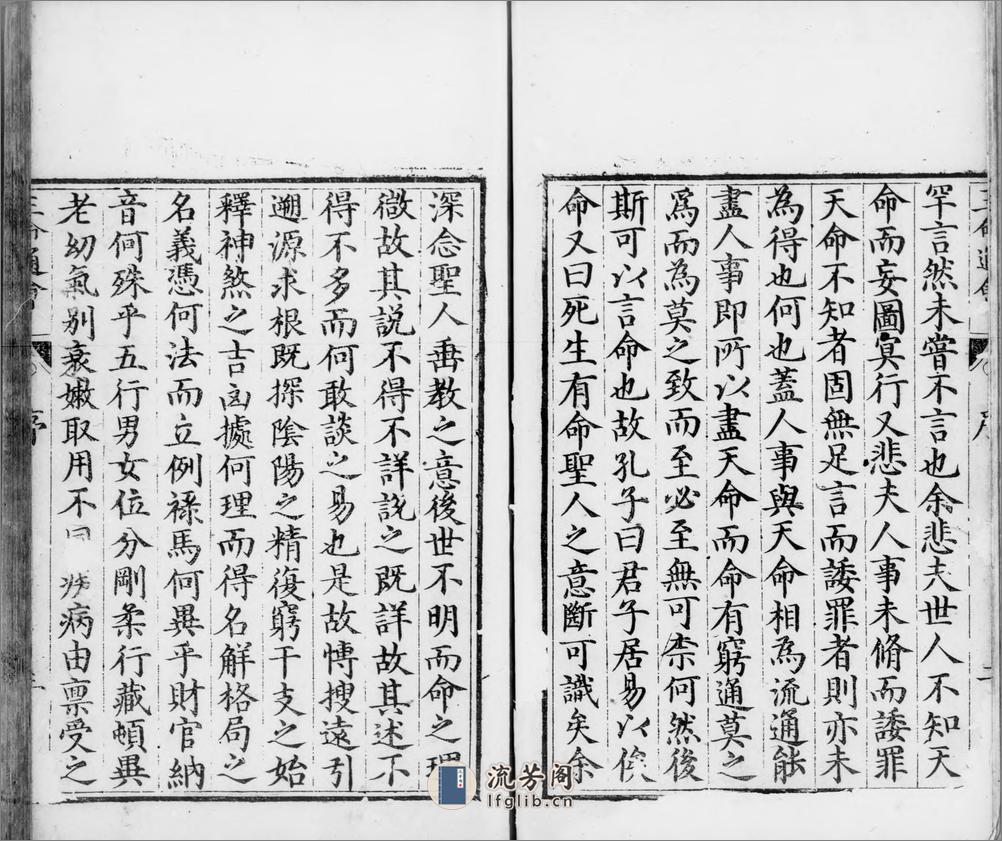 罕言然未嘗不言也余悲夫世人不知天
命而妄圖冥行又悲夫人事未脩而諉罪
天命不知者固無足言而諉罪者則亦未
為得也何也蓋人事與天命相為流通能
盡人事即所以盡天命而命有窮通莫之
爲而為莫之致而至必至無可柰何然後
斯可以言命也故孔子曰君子居易以俟
命又曰死生有命聖人之意斷可識矣余
深念聖人垂教之意後世不明而命之理
微故其說不得不詳說之既詳故其述不
得不多而何敢談之易也是故愽搜遠引
遡源求根既探陰陽之精復窮干支之始
釋神煞之吉凶據何理而得名解格局之
名義憑何法而立例祿馬何異乎財官納
音何殊乎五行男女位分剛柔行藏頓異
老幼氣別衰嫩取用不 病由禀受之
三命通會
序
流芳阁
lfglib.cn